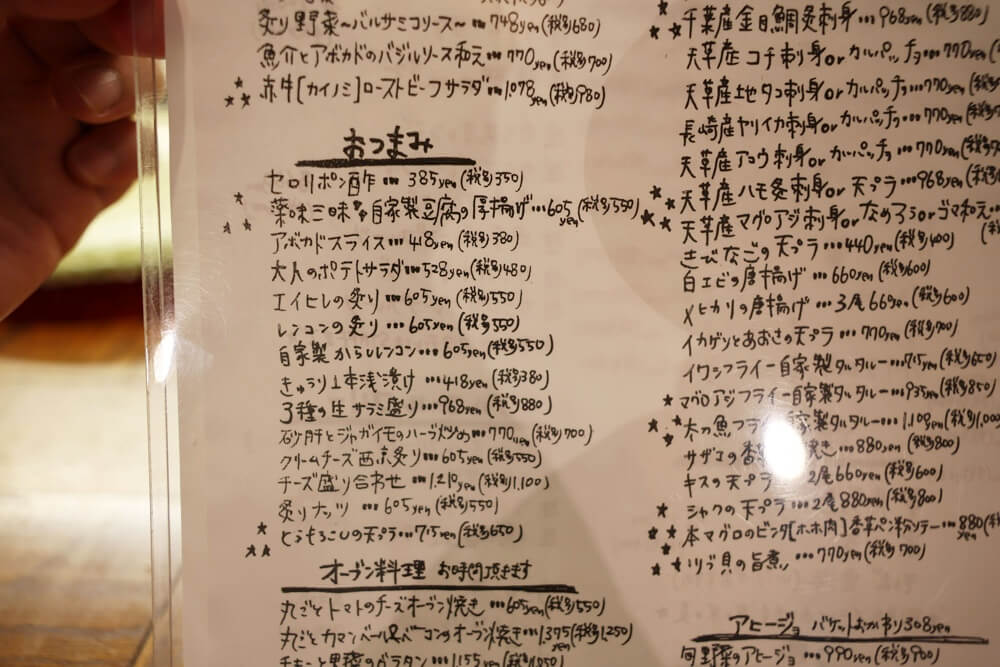 炙り野菜〜バルサミコソース〜…748yen(税抜680)
魚介とアボカドのバジルソース和え…770yen(税抜700)
★赤牛[カイノミ]ローストビーフサラダ…1,078yen(税抜980)
おつまみ
セロリポン酢…385yen(税抜350)
★薬味三昧 自家製豆腐の厚揚げ…605yen(税抜550)
アボカドスライス…418yen(税抜380)
大人のポテトサラダ…528yen(税抜480)
エイヒレの炙り…605yen(税抜550)
レンコンの炙り…605yen(税抜550)
自家製からしレンコン…605yen(税抜550)
きゅうり1本浅漬け…418yen(税抜380)
3種の生サラミ盛り…968yen(税抜880)
砂肝とジャガイモのハーブ炒め…770yen(税抜700)
クリームチーズ西京炙り…605yen(税抜550)
チーズ盛り合わせ…1,210yen(税抜1,100)
炙りナッツ…605yen(税抜550)
★とうもろこしの天プラ…715yen(税抜650)
オーブン料理 お時間頂きます
丸ごとトマトのチーズオーブン焼き…605yen(税抜550)
丸ごとカマンベール&ベーコンのオーブン焼き…1,375(税抜1,250)
1,155yen(税抜1,050)
★千葉産金目鯛炙刺身…968yen(税抜880)
天草産コチ刺身orカルパッチョ…770yen
天草産地タコ刺身orカルパッチョ…770yen
長崎産ヤリイカ刺身orカルパッチョ…770yen
天草産アコウ刺身orカルパッチョ…770yen
★天草産ハモ炙刺身or天プラ…968yen(税抜
★天草産マグロアジ刺身orなめろうorゴマ和え…
きびなごの天プラ…440yen(税抜400)
白エビの唐揚げ…660yen(税抜600)
メヒカリの唐揚げ…3尾660yen(税抜600)
イカゲソとあおさの天プラ…770yen(税抜700)
イワシフライー自家製タルタルー…715yen(税抜650)
★マグロアジフライー自家製タルタルー…935yen(税抜850)
★太刀魚フライ 自家製タルタルー…1,100yen(税抜1,000
サザエの香 焼き…880yen(税抜800)
キスの天プラ 2尾660yen(税抜600)
★シャクの天プラ…2尾880yen(税抜800)
★本マグロのビンタ[ホホ肉]香草パン粉ソテー…880(税
★ツブ貝の旨煮…770yen(税抜700)
アヒージョ バケットおかわり308yen
旬野菜のアヒージョ…990yen(税抜900)